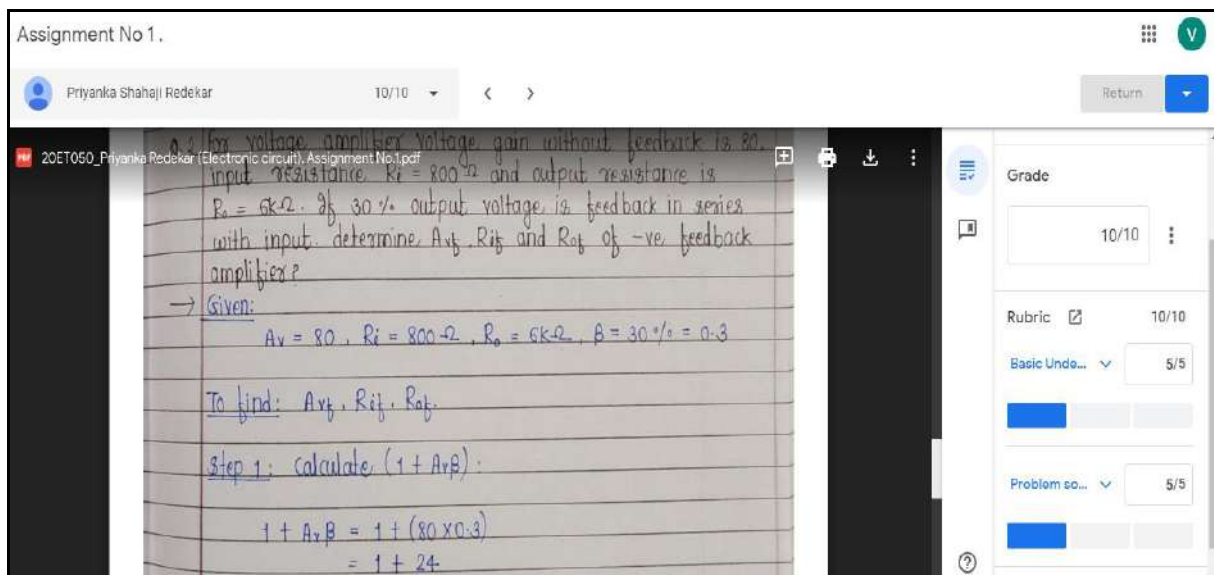 Assignment No 1.
V
Priyanka Shahaji Redekar
10/10
Return
20ET050_Priyanka Redekar (Electronic circuit). Assignment No.1.pdf
Q.2 For voltage amplifier voltage gain without feedback is 80.
input resistance Ri = 800 Ω and output resistance is
Ro = 6kΩ. If 30 % output voltage is feedback in series
with input. determine Avf, Rif and Rof of -ve feedback
amplifier?
→ Given:
Av = 80, Ri = 800 Ω, Ro = 6kΩ, β = 30 % = 0.3
To find: Avf, Rif, Rof.
Step 1: Calculate (1 + Avβ):
1 + Avβ = 1 + (80 x 0.3)
= 1 + 24
Grade
10/10
Rubric
10/10
Basic Unde...
5/5
Problem so...
5/5